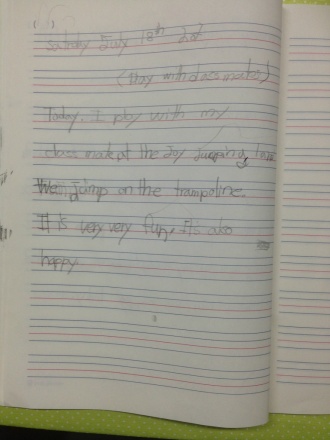 ( )
Saturday July 18th
(Play with classmates)
Today, I play with my
class mate at the Joy Jumping,
We Jump on the trampoline.
It is very very fun, It's also
happy